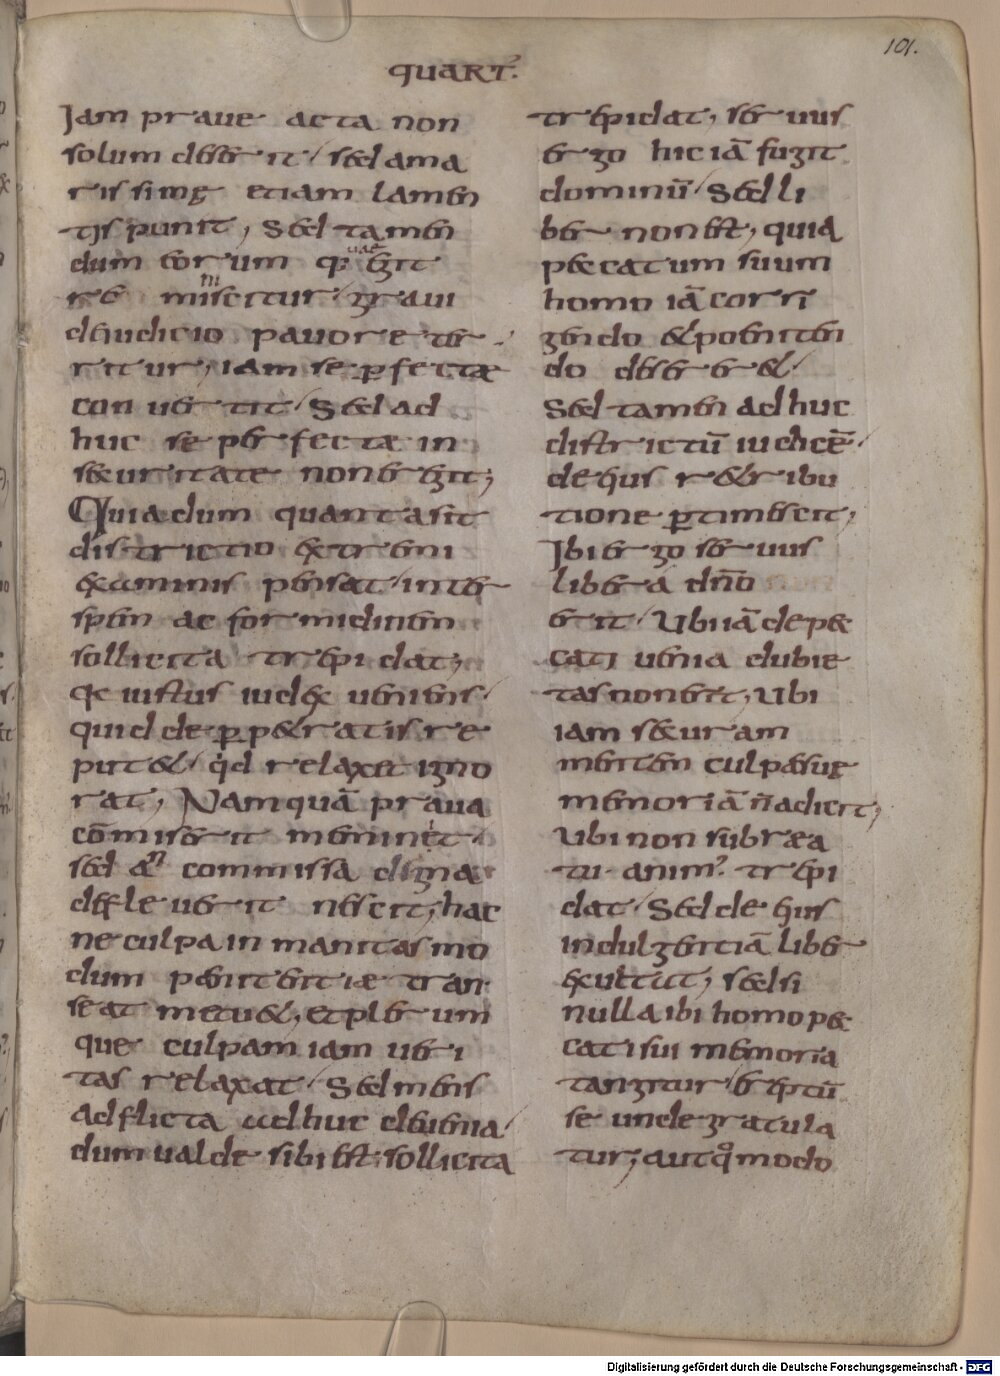 101.
QUART'.
Iam praue acta non
solum deserit, sed ama
rissime etiam lamen
tis punit; Sed tamen
dum eorum quae egit
re miniscitur graui
de iudicio pauore ter
ritur; iam se pfectae
conuertit, Sed ad
huc se perfectae in
securitate non erigit;
Quia dum quanta sit
districtio extremi
examinis pensat, inter
spem ac formidinem
sollicita trepidat;
qa iustus iudex ueniens
quid de ppetratis re
putet, qd relaxet igno
rat; Nam quā praua
cōmiserit meminit,
sed an commissa digne
defleuerit nescit; hac
ne culpa inmanitas mo
dum penitentiae tran
seat metuet, et plerum
que culpam iam ueri
tas relaxat, Sed mens
adflicta adhuc de uenia
dum ualde sibi est sollicita
trepidat; seruus
ergo hic iā fugit
dominū, Sed li
ber non est, quia
peccatum suum
homo iā corri
gendo et poeniten
do deserit
Sed tamen adhuc
districtū iudicē
de eius retribu
tione ptimescit;
Ibi ergo seruus
liber a dn̄o
erit, Ubi iā de pec
cati uenia dubie
tas non erit; Ubi
iam securam
mentem culpae sue
memoriā n̄ adicit;
Ubi non sub rea
tu anim' trepi
dat, Sed de eius
indulgentiā liber
exultat; sed si
nulla ibi homo pec
cati sui memoria
tangitur, ereptū
se unde gratula
tur; aut qomodo
Digitalisierung gefördert durch die Deutsche Forschungsgemeinschaft - DFG